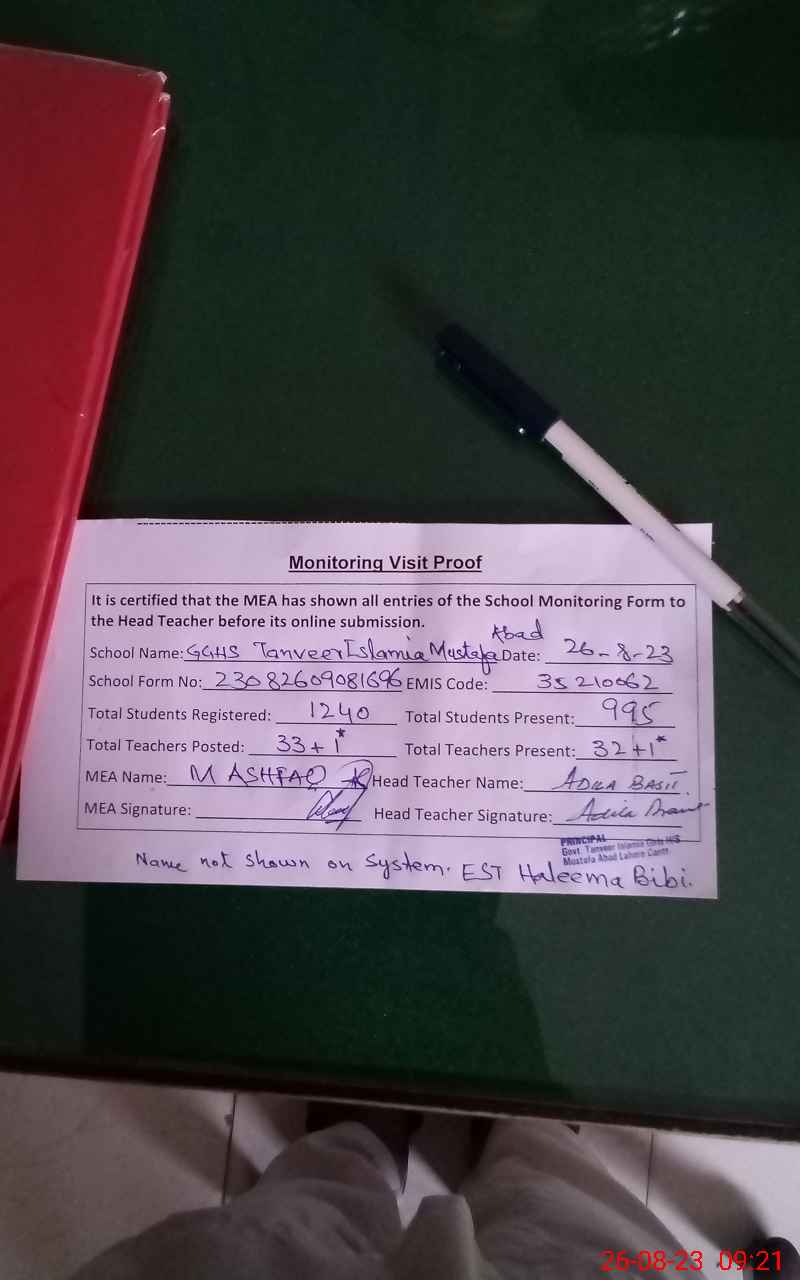 Monitoring Visit Proof
It is certified that the MEA has shown all entries of the School Monitoring Form to
the Head Teacher before its online submission.
School Name: GGHS Tanveer Islamia Mustafa Abad Date: 26-8-23
School Form No: 2308260908 1696 EMIS Code: 35210062
Total Students Registered: 1240 Total Students Present: 995
Total Teachers Posted: 33+1* Total Teachers Present: 32+1*
MEA Name: M ASHFAQ Head Teacher Name: ADILA BASIT.
MEA Signature: Head Teacher Signature: Adila
PRINCIPAL
Govt. Tanveer Islamia Girls H/S
Mustafa Abad Lahore Cantt
Name not shown on System. EST Haleema Bibi.
26-08-23 09:21